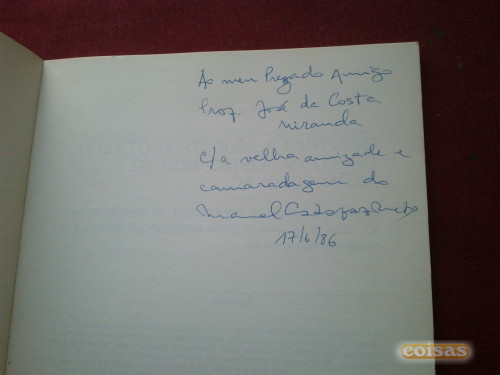 Ao meu Prezado Amigo
Prof. José da Costa
Miranda
c/a velha amizade e
camaradagem do
Manuel
17/6/86
coisas